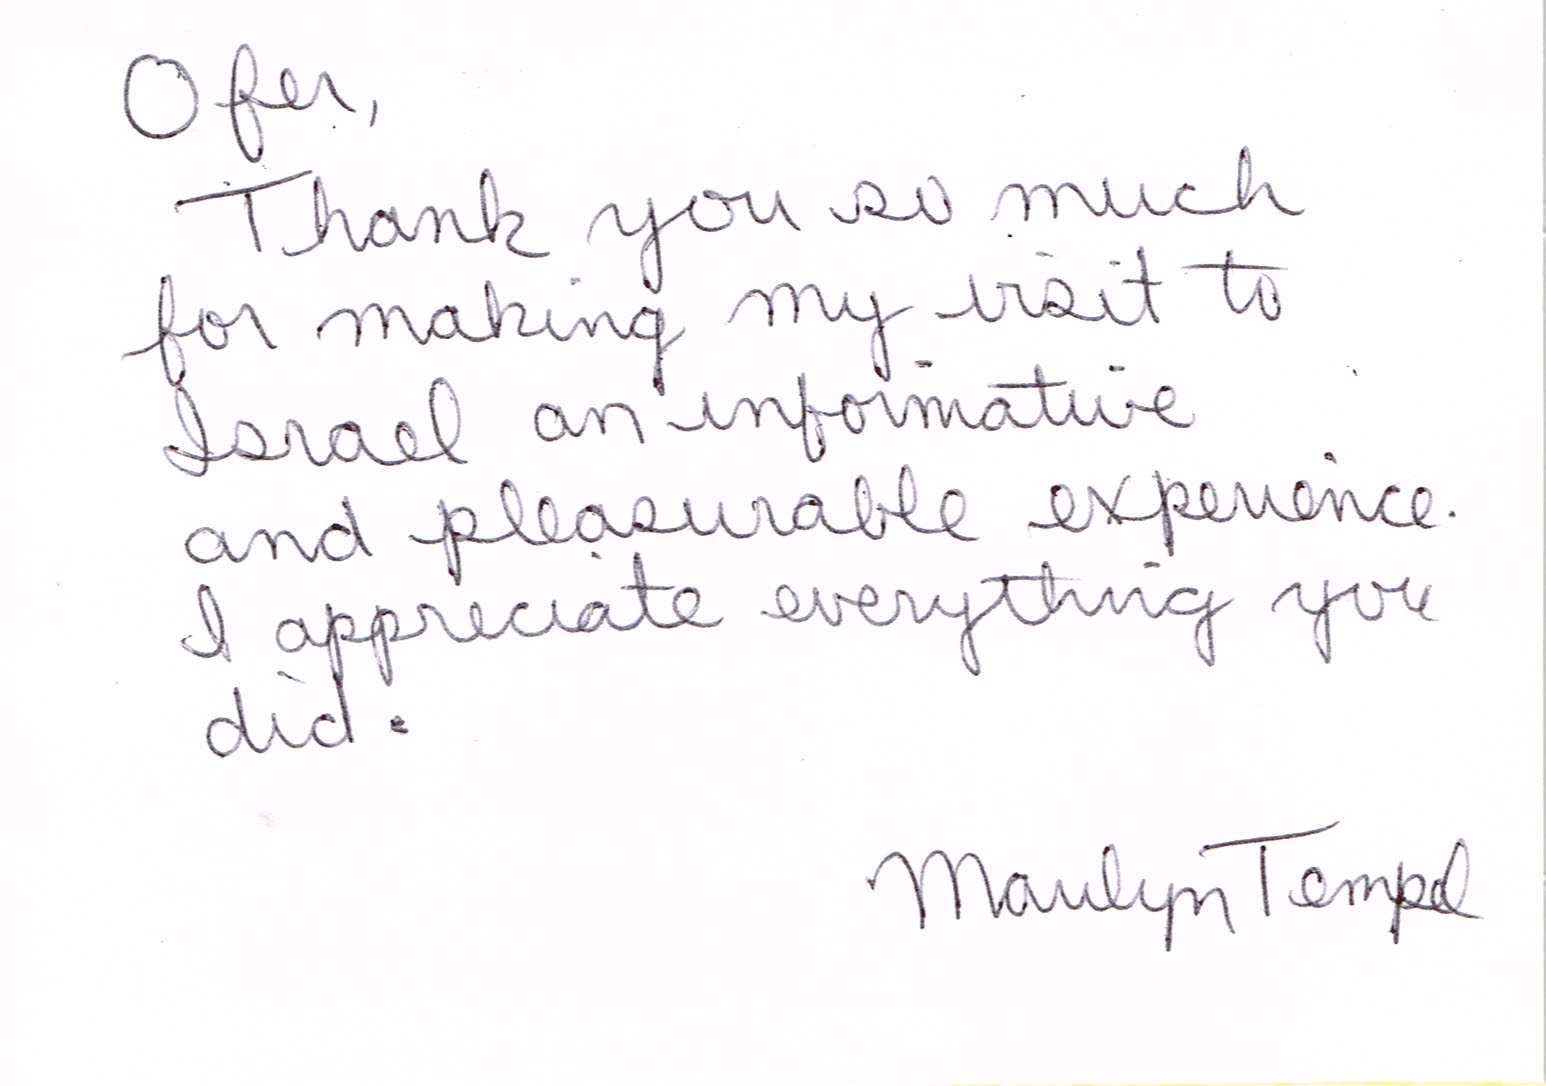 Ofer,
Thank you so much
for making my visit to
Israel an informative
and pleasurable experience.
I appreciate everything you
did.
Marilyn